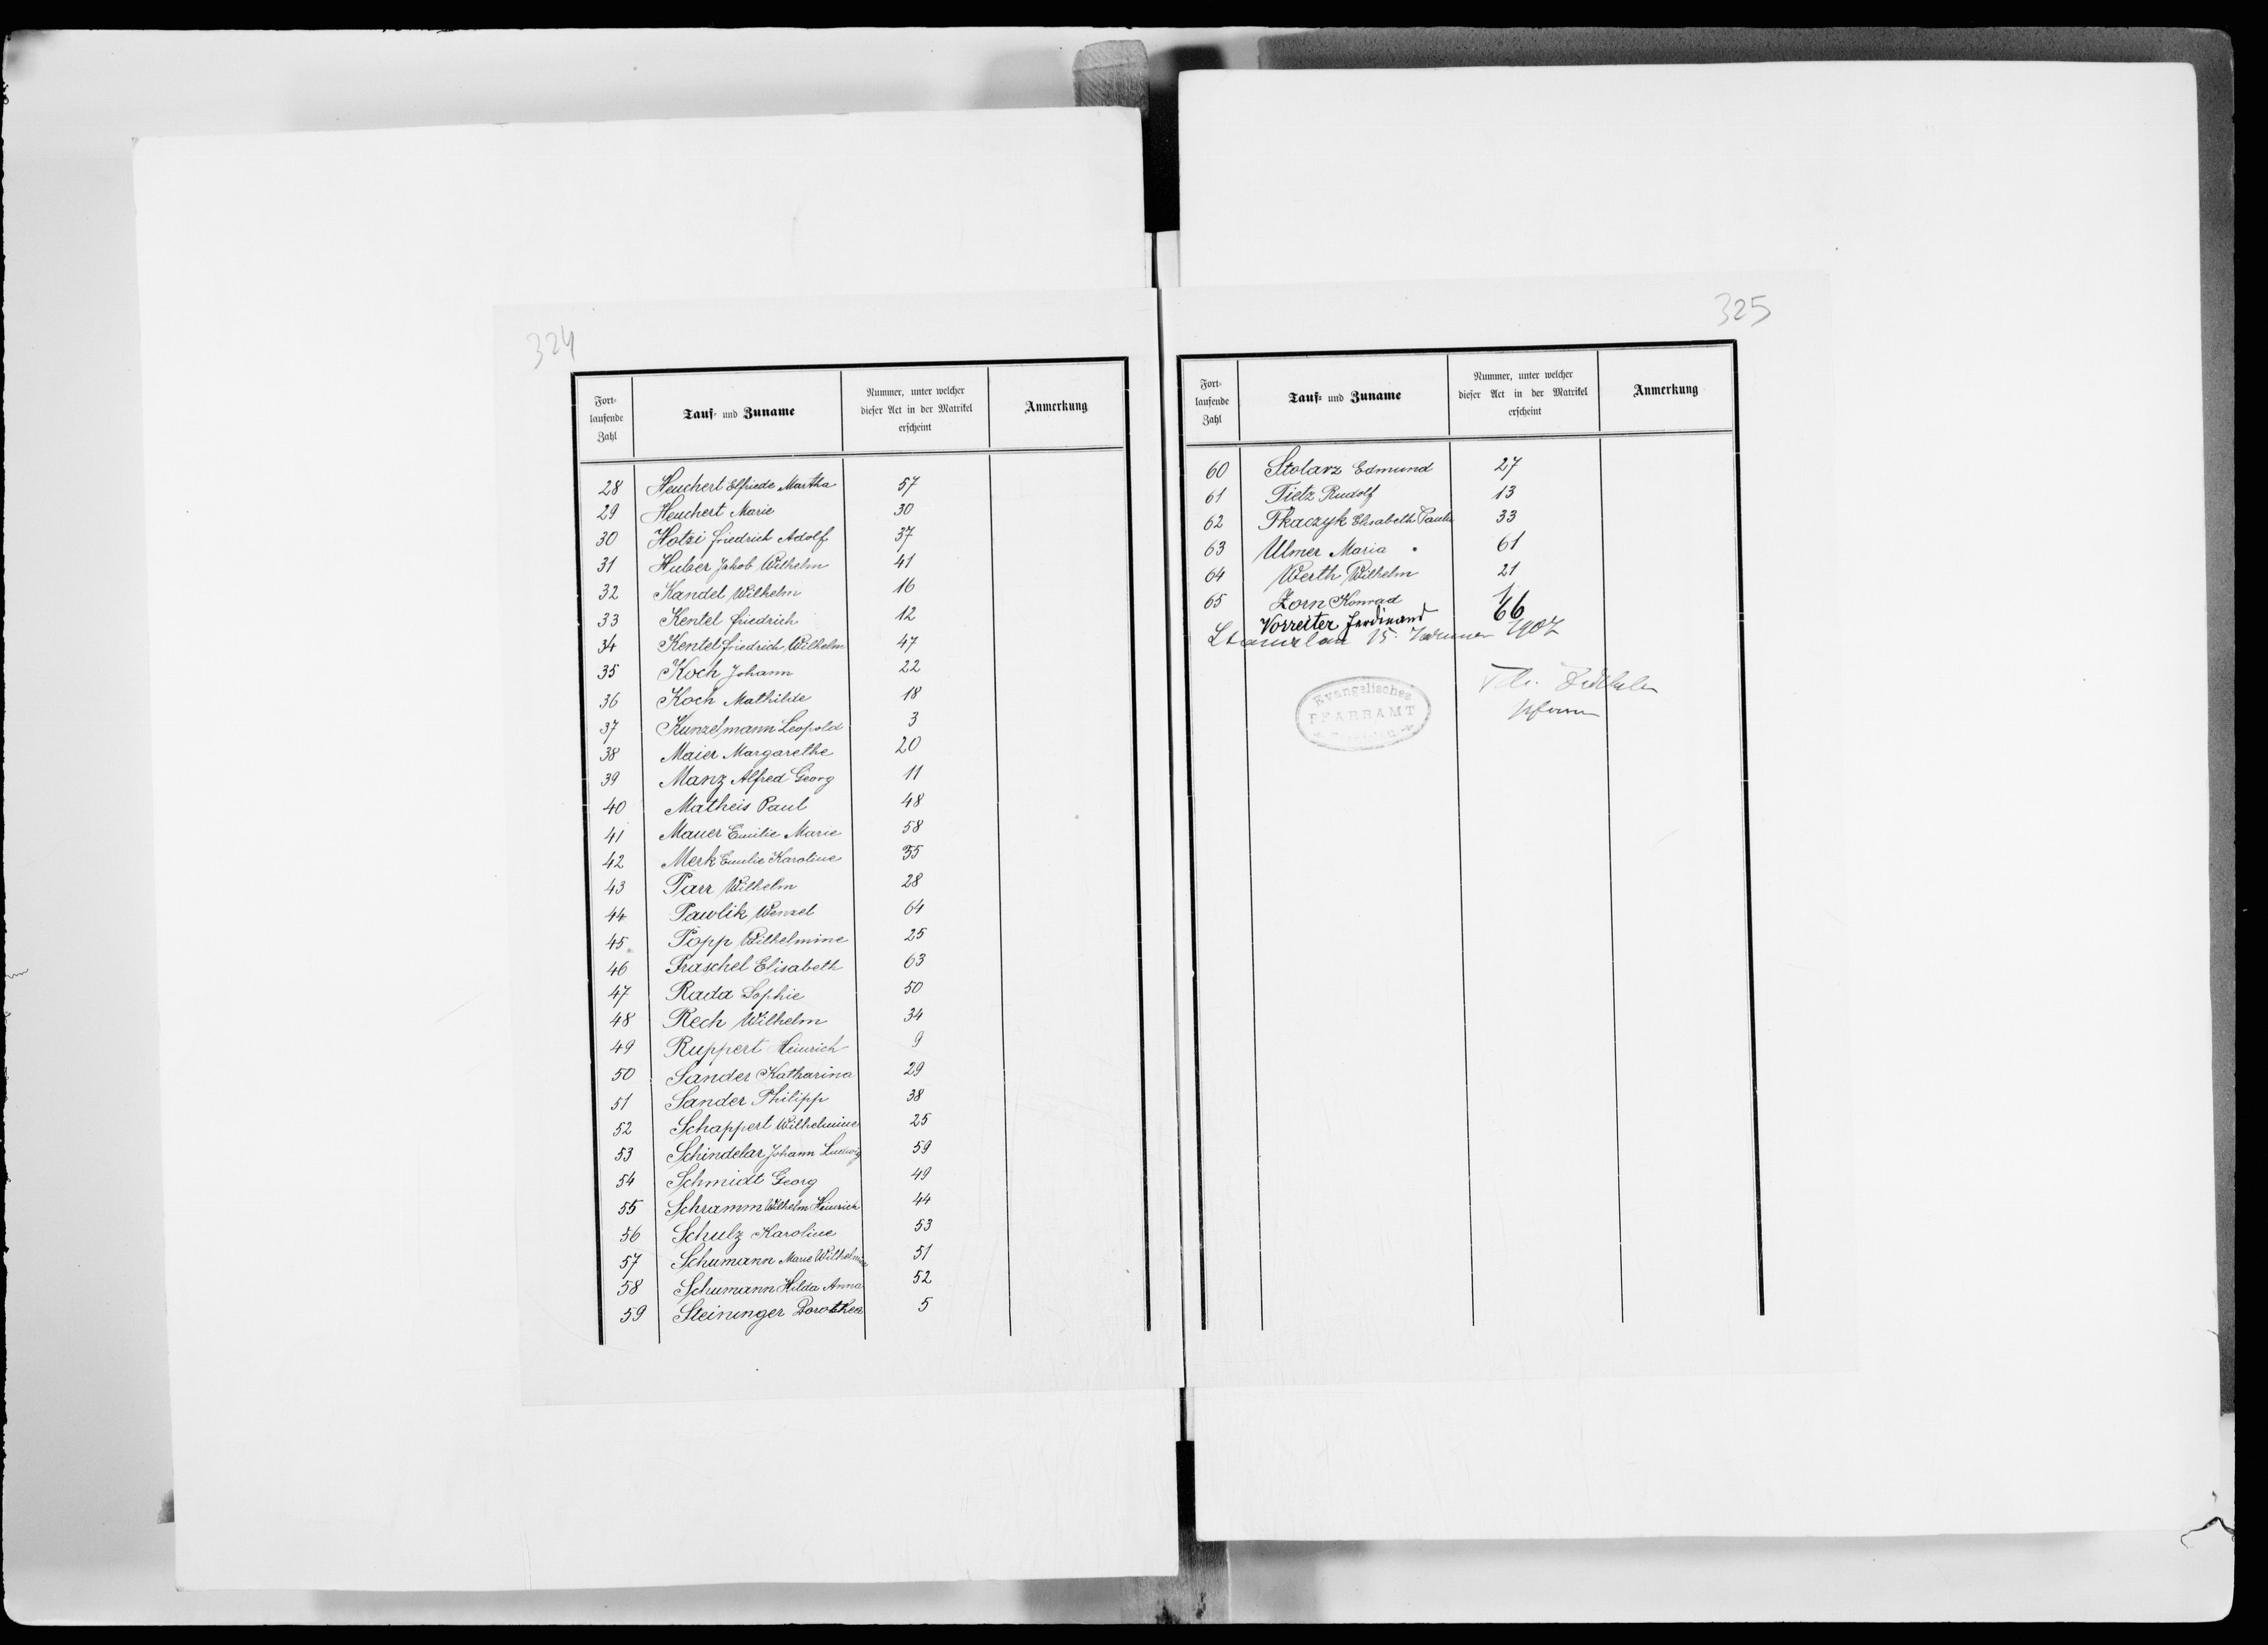 324
Fort-
laufende
Zahl
Tauf- und Zuname
Nummer, unter welcher
dieser Act in der Matrikel
erscheint
Anmerkung
28 Heuchert Elfriede Martha 57
29 Heuchert Marie 30
30 Hotzi Friedrich Adolf 37
31 Huber Jakob Wilhelm 41
32 Kandel Wilhelm 16
33 Kentel Friedrich 12
34 Kentel Friedrich Wilhelm 47
35 Koch Johann 22
36 Koch Mathilde 18
37 Kunzelmann Leopold 3
38 Maier Margarethe 20
39 Manz Alfred Georg 11
40 Matheis Paul 48
41 Mauer Emilie Marie 58
42 Merk Emilie Karoline 35
43 Parr Wilhelm 28
44 Pawlik Wenzel 64
45 Popp Wilhelmine 25
46 Praschel Elisabeth 63
47 Rada Sophie 50
48 Rech Wilhelm 34
49 Ruppert Heinrich 9
50 Sander Katharina 29
51 Sander Philipp 38
52 Schappert Wilhelmine 25
53 Schindelar Johann Ludwig 59
54 Schmidt Georg 49
55 Schramm Wilhelm Heinrich 44
56 Schulz Karoline 53
57 Schumann Marie Wilhelmine 51
58 Schumann Hilda Anna 52
59 Steininger Dorothea 5
325
Fort-
laufende
Zahl
Tauf- und Zuname
Nummer, unter welcher
dieser Act in der Matrikel
erscheint
Anmerkung
60 Stolarz Edmund 27
61 Tietz Rudolf 13
62 Tkaczyk Elisabeth Paula 33
63 Ulmer Maria 61
64 Werth Wilhelm 21
65 Zorn Konrad 1
Vorreiter Ferdinand 66
Stanislau 15. Januar 1907
Evangelisches
PFARRAMT